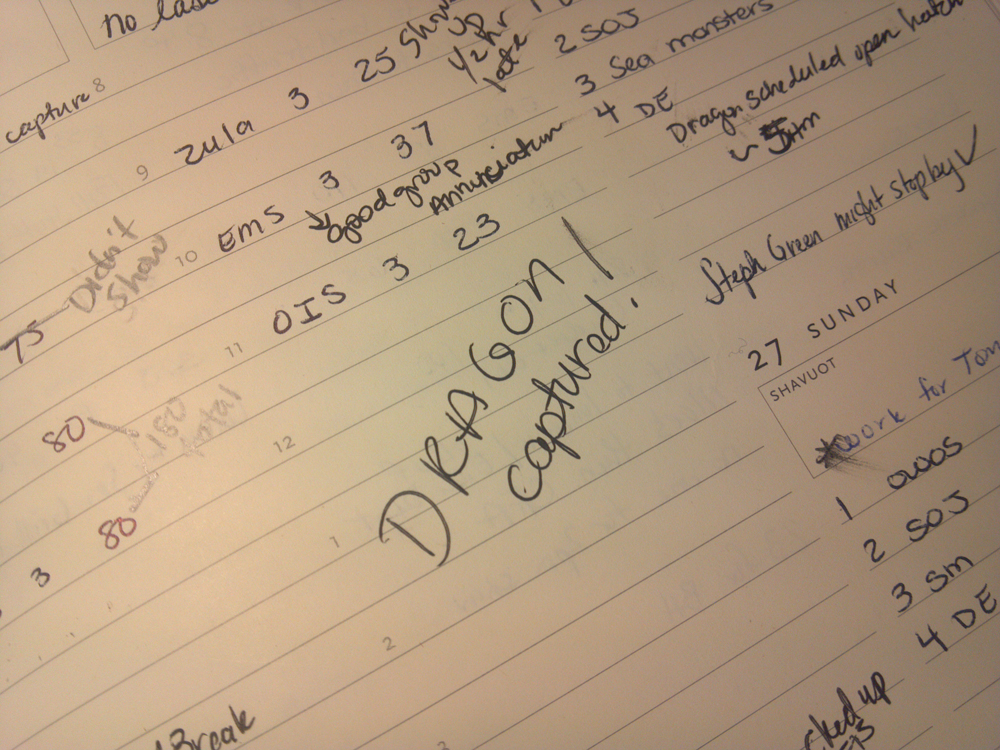 no
capture 8
9 Zula 3 25 Show
up
1/2 hr
late
10 EMS 3 37
good group
11 OIS 3 23
12
DRAGON
captured!
1
2
75 Didn't
Show
80
total
80
3
Break
2 SOJ
3 Sea monsters
4 DE
Dragon scheduled open hatch
Steph Green might stop by ✓
27 SUNDAY
SHAVUOT
work for Tom
1
2 SOJ
3 Sm
4 DE
up